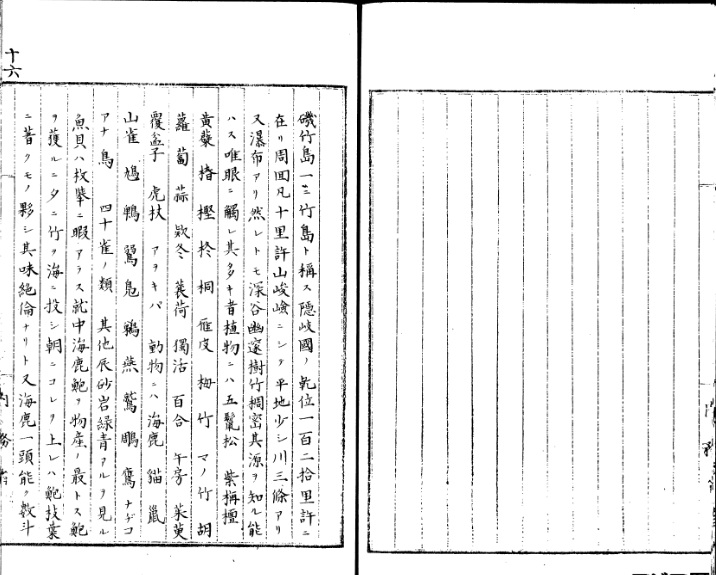 磯竹島一ニ竹島ト稱ス隠岐國ノ乾位一百二拾里許ニ
在リ周回凡十里許山峻嶮ニシテ平地少シ川三條アリ
又瀑布アリ然レトモ深谷幽邃樹竹稠密其源ヲ知ル能
ハス唯眼ニ觸レ其多キ者植物ニハ五鬣松 紫栴檀
黄蘗 椿 樫 柊 桐 雁皮 栂 竹 マノ竹 胡
蘿蔔 蒜 欵冬 蘘荷 獨活 百合 牛房 茱萸
覆盆子 虎杖 アヲキバ 動物ニハ海鹿 猫 鼠
山雀 鳩 鴨 鶸 鳬 鵜 燕 鷲 鵰 鷹 ナヂコ
アナ鳥 四十雀ノ類 其他辰砂岩緑青アルヲ見ル
魚貝ハ枚擧ニ暇アラス就中海鹿鮑ヲ物産ノ最トス鮑
ヲ獲ルニ夕ニ竹ヲ海ニ投シ朝ニコレヲ上レハ鮑枝葉
ニ着クモノ夥シ其味絶倫ナリト又海鹿一頭能ク數斗
十六